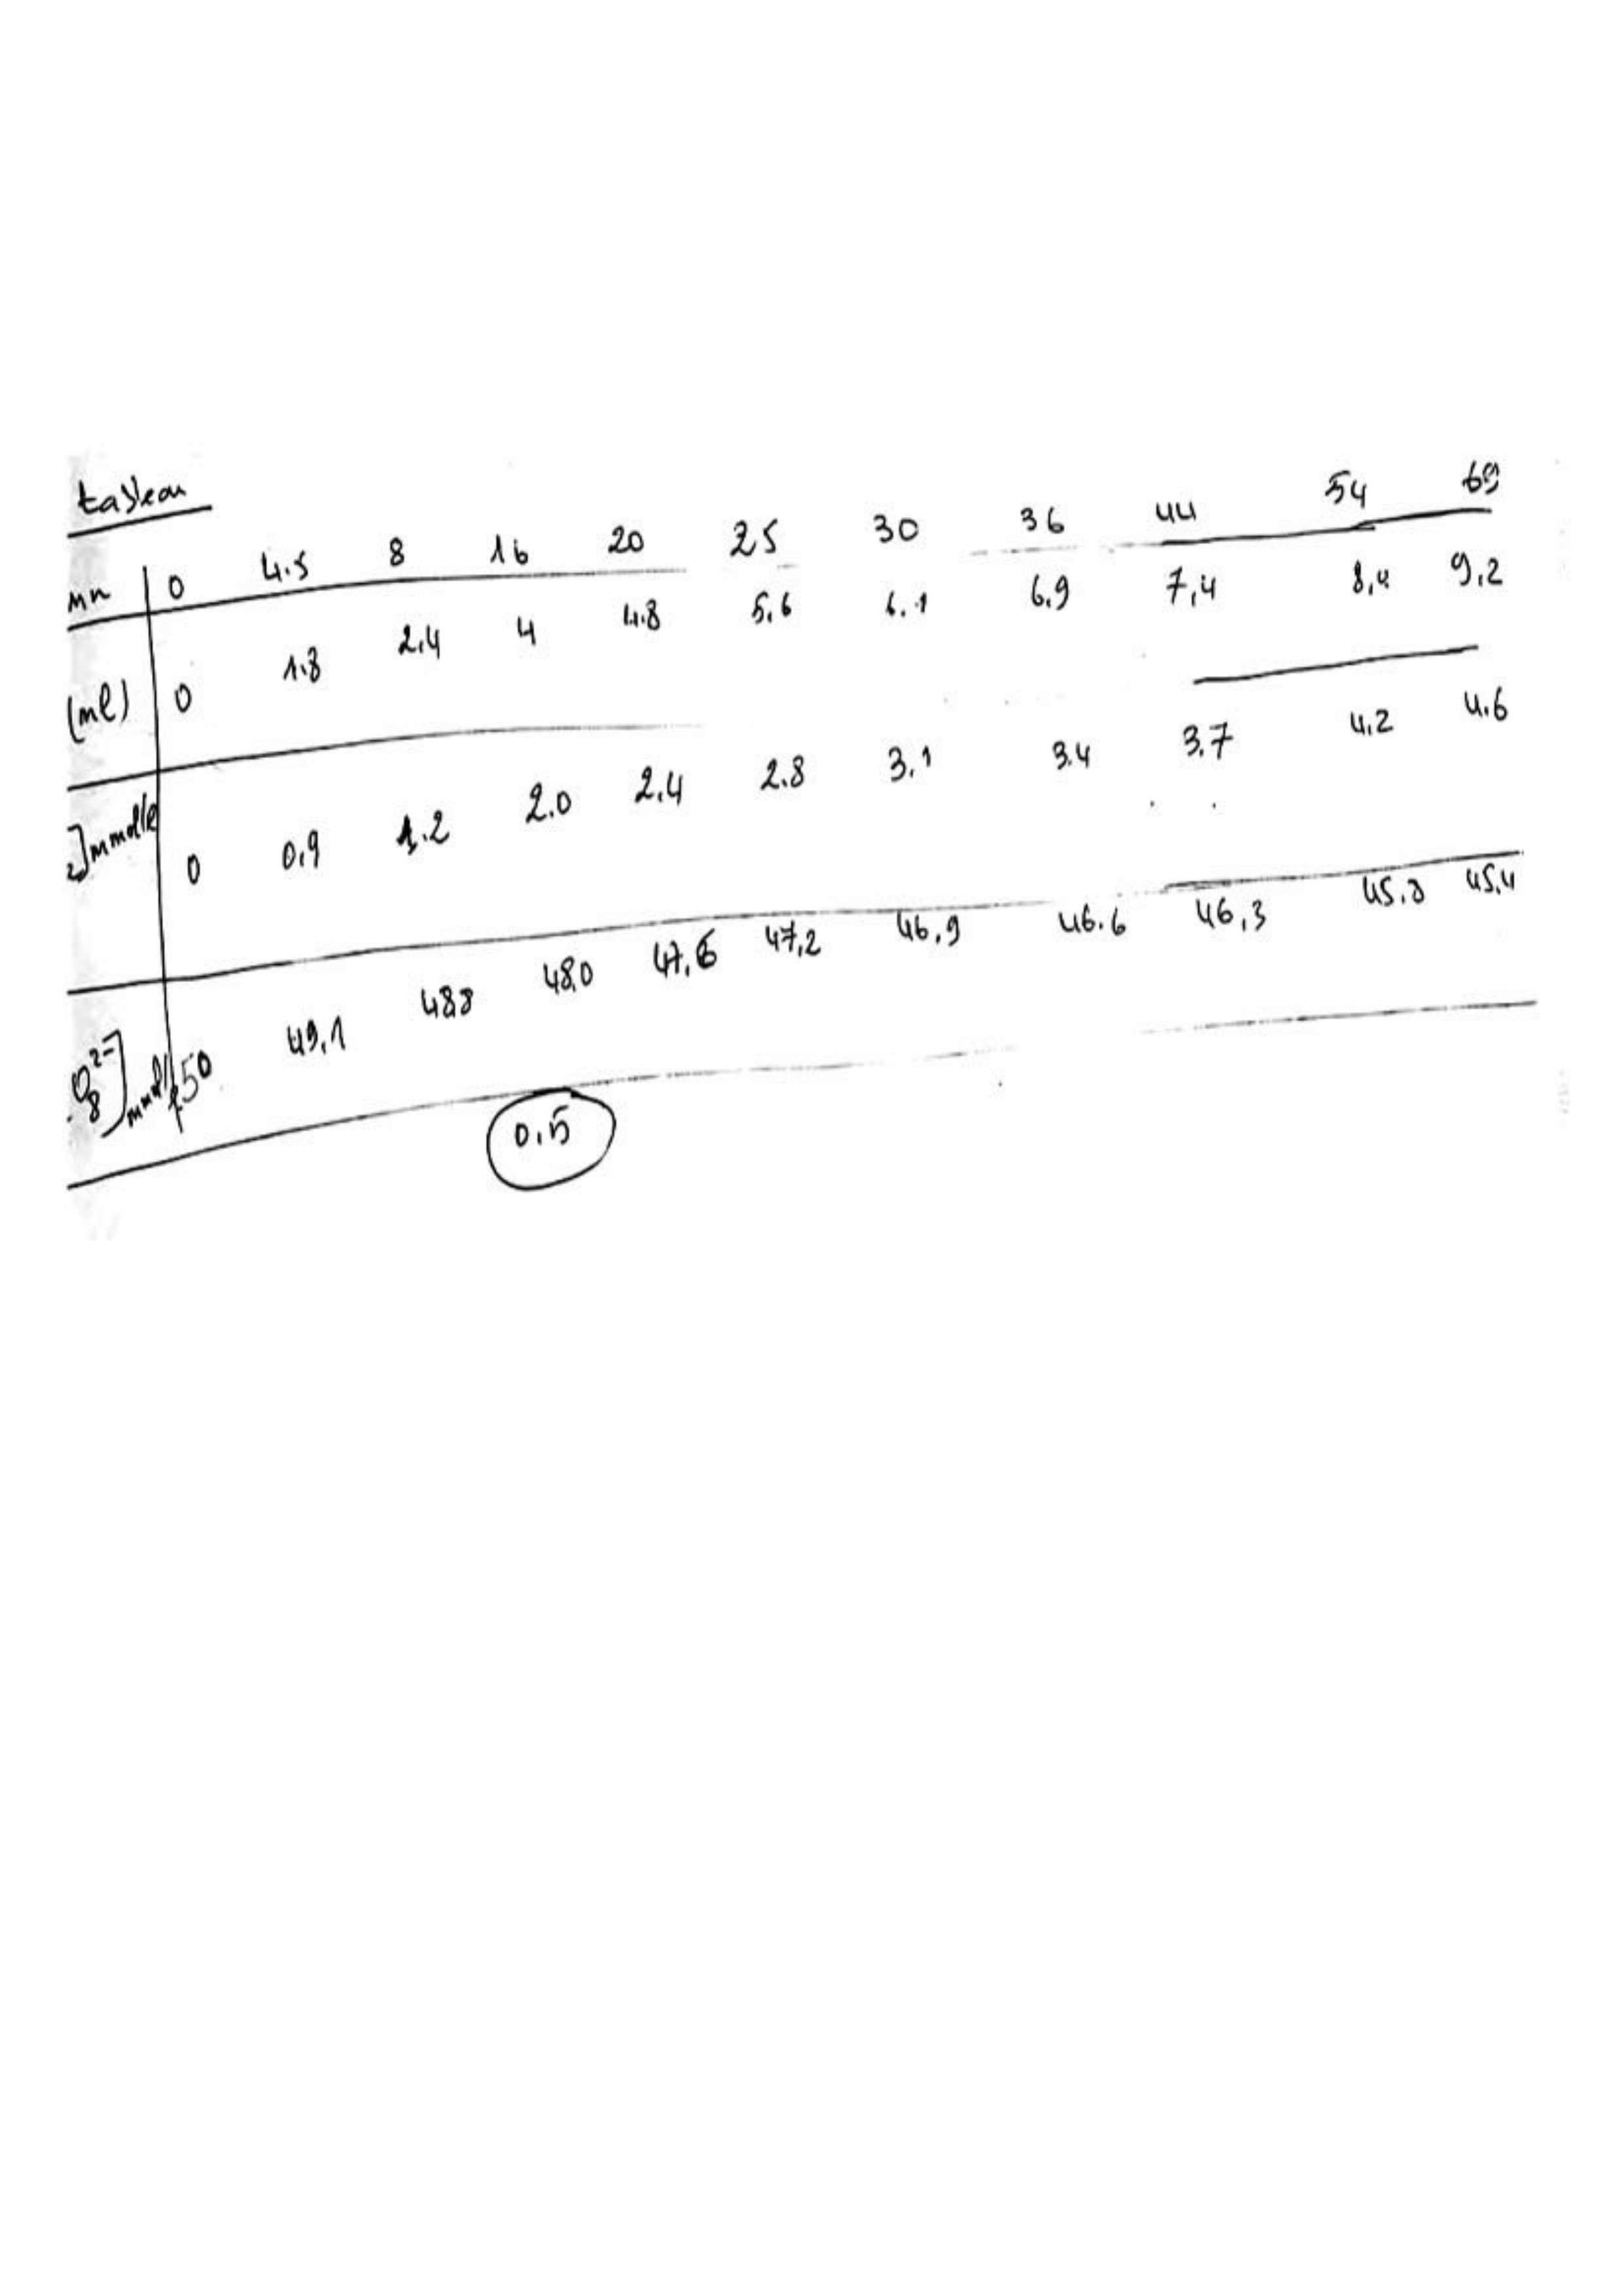 tableau
mn 0 4.5 8 16 20 25 30 36 44 54 69
(ml) 0 1.8 2,4 4 4.8 5,6 6.1 6,9 7,4 8,4 9,2
2] mmol/l 0 0,9 1.2 2.0 2,4 2.8 3,1 3.4 3.7 4,2 4.6
O8 2-] mmol/l 50 49,1 48,8 48,0 47,6 47,2 46,9 46.6 46,3 45,8 45,4
0,5